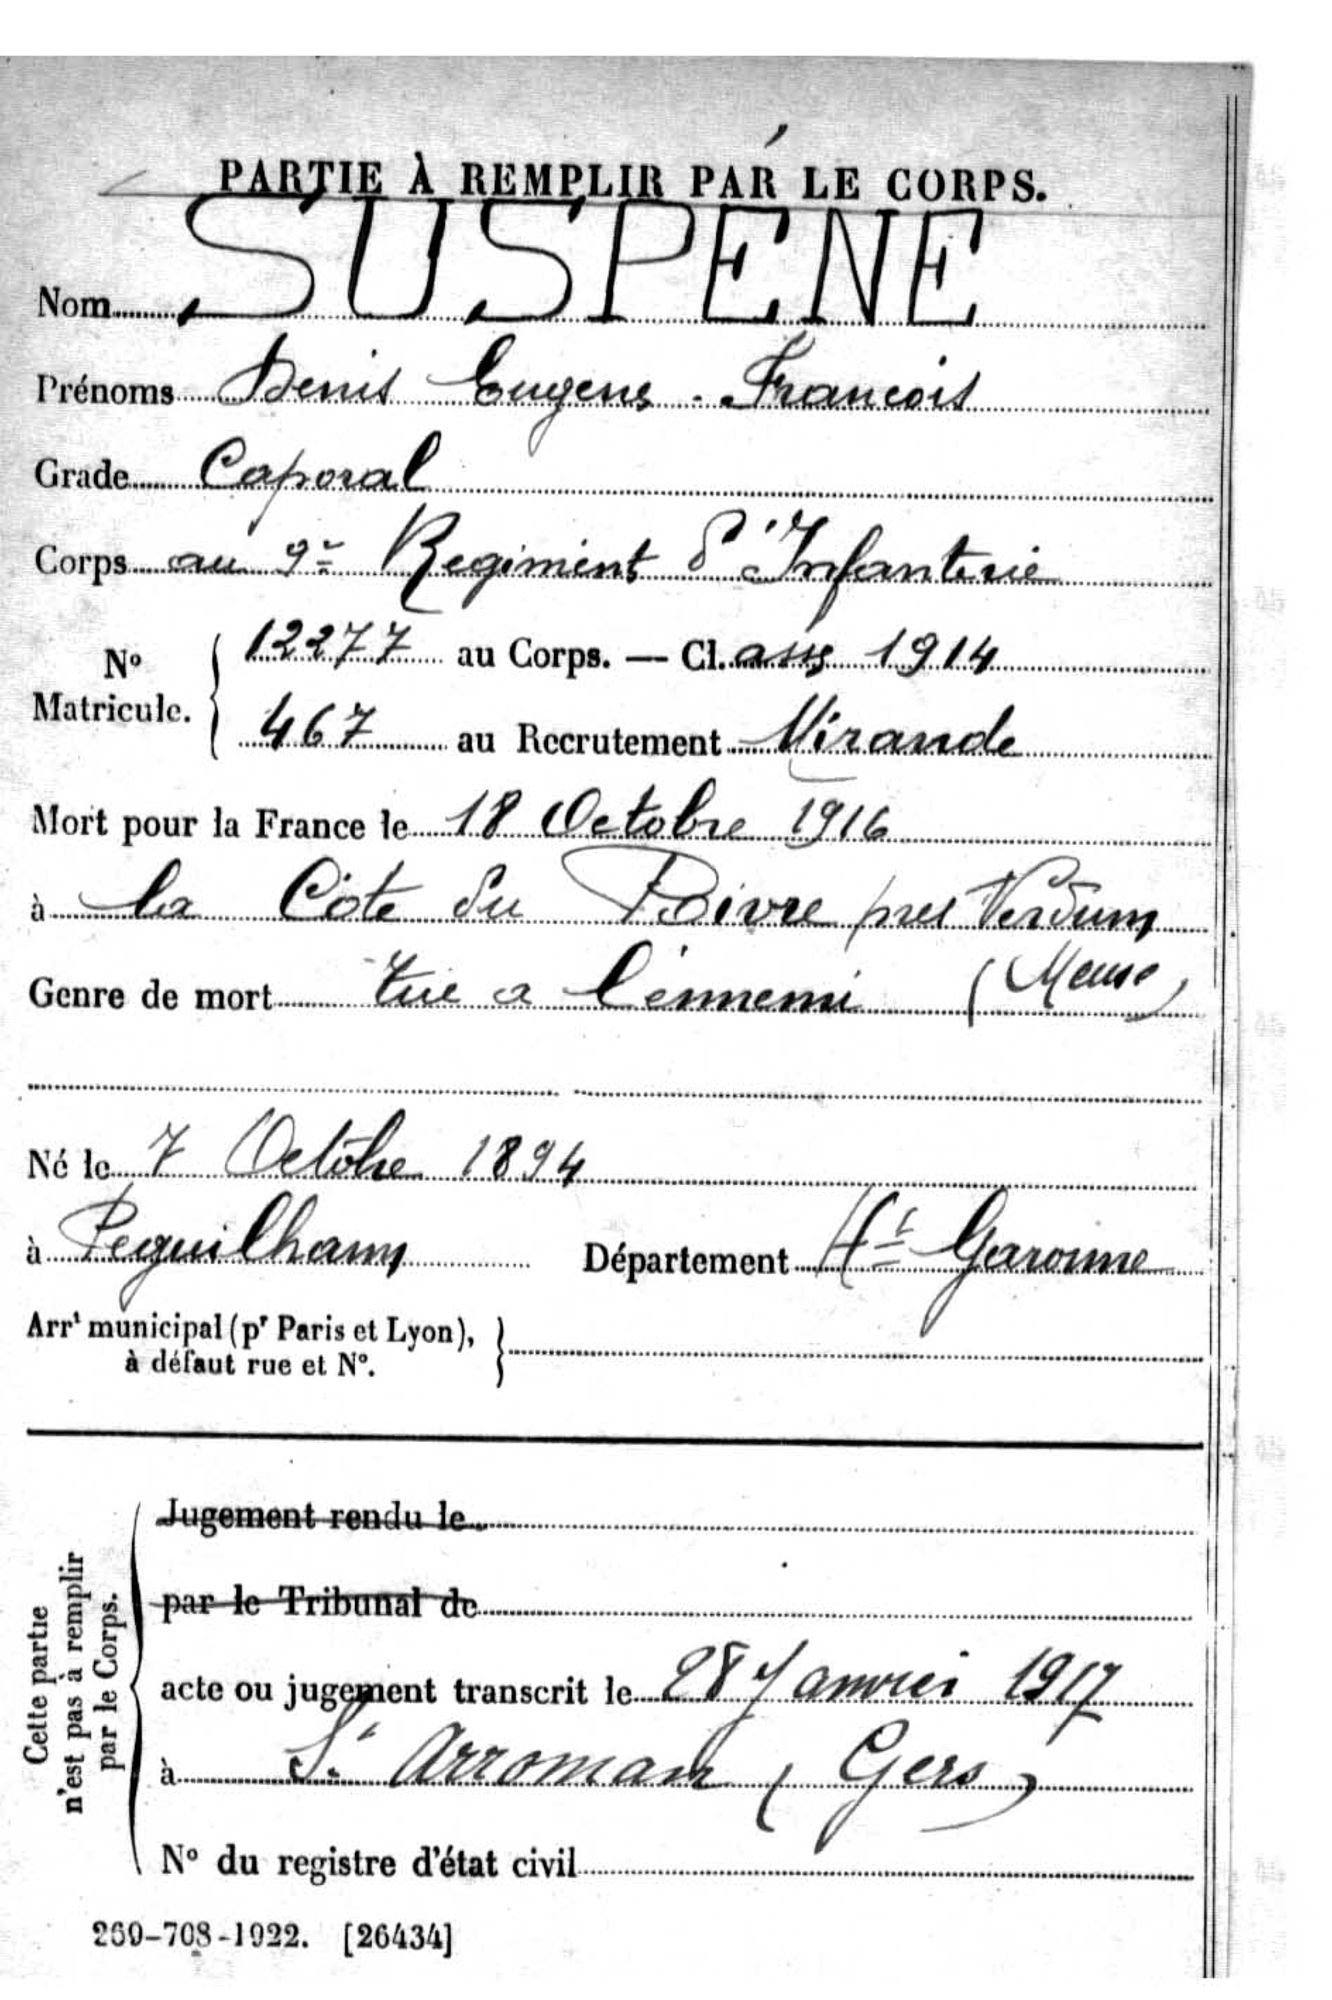 PARTIE À REMPLIR PAR LE CORPS.
Nom SUSPENE
Prénoms Denis Eugene - Francois
Grade Caporal
Corps au 9e Regiment d'Infanterie
No Matricule. { 12277 au Corps. — Cl.asse 1914
467 au Recrutement Mirande
Mort pour la France le 18 Octobre 1916
à la Côte du Poivre pres Verdun
(Meuse)
Genre de mort tué a l'énnemi
Né le 7 Octobre 1894
à Peguilham Département Hte Garonne
Arrt municipal (pr Paris et Lyon),
à défaut rue et No.
Cette partie
n'est pas à remplir
par le Corps.
Jugement rendu le
par le Tribunal de
acte ou jugement transcrit le 28 Janvier 1917
à St Arroman (Gers)
No du registre d'état civil
269-708-1922. [26434]